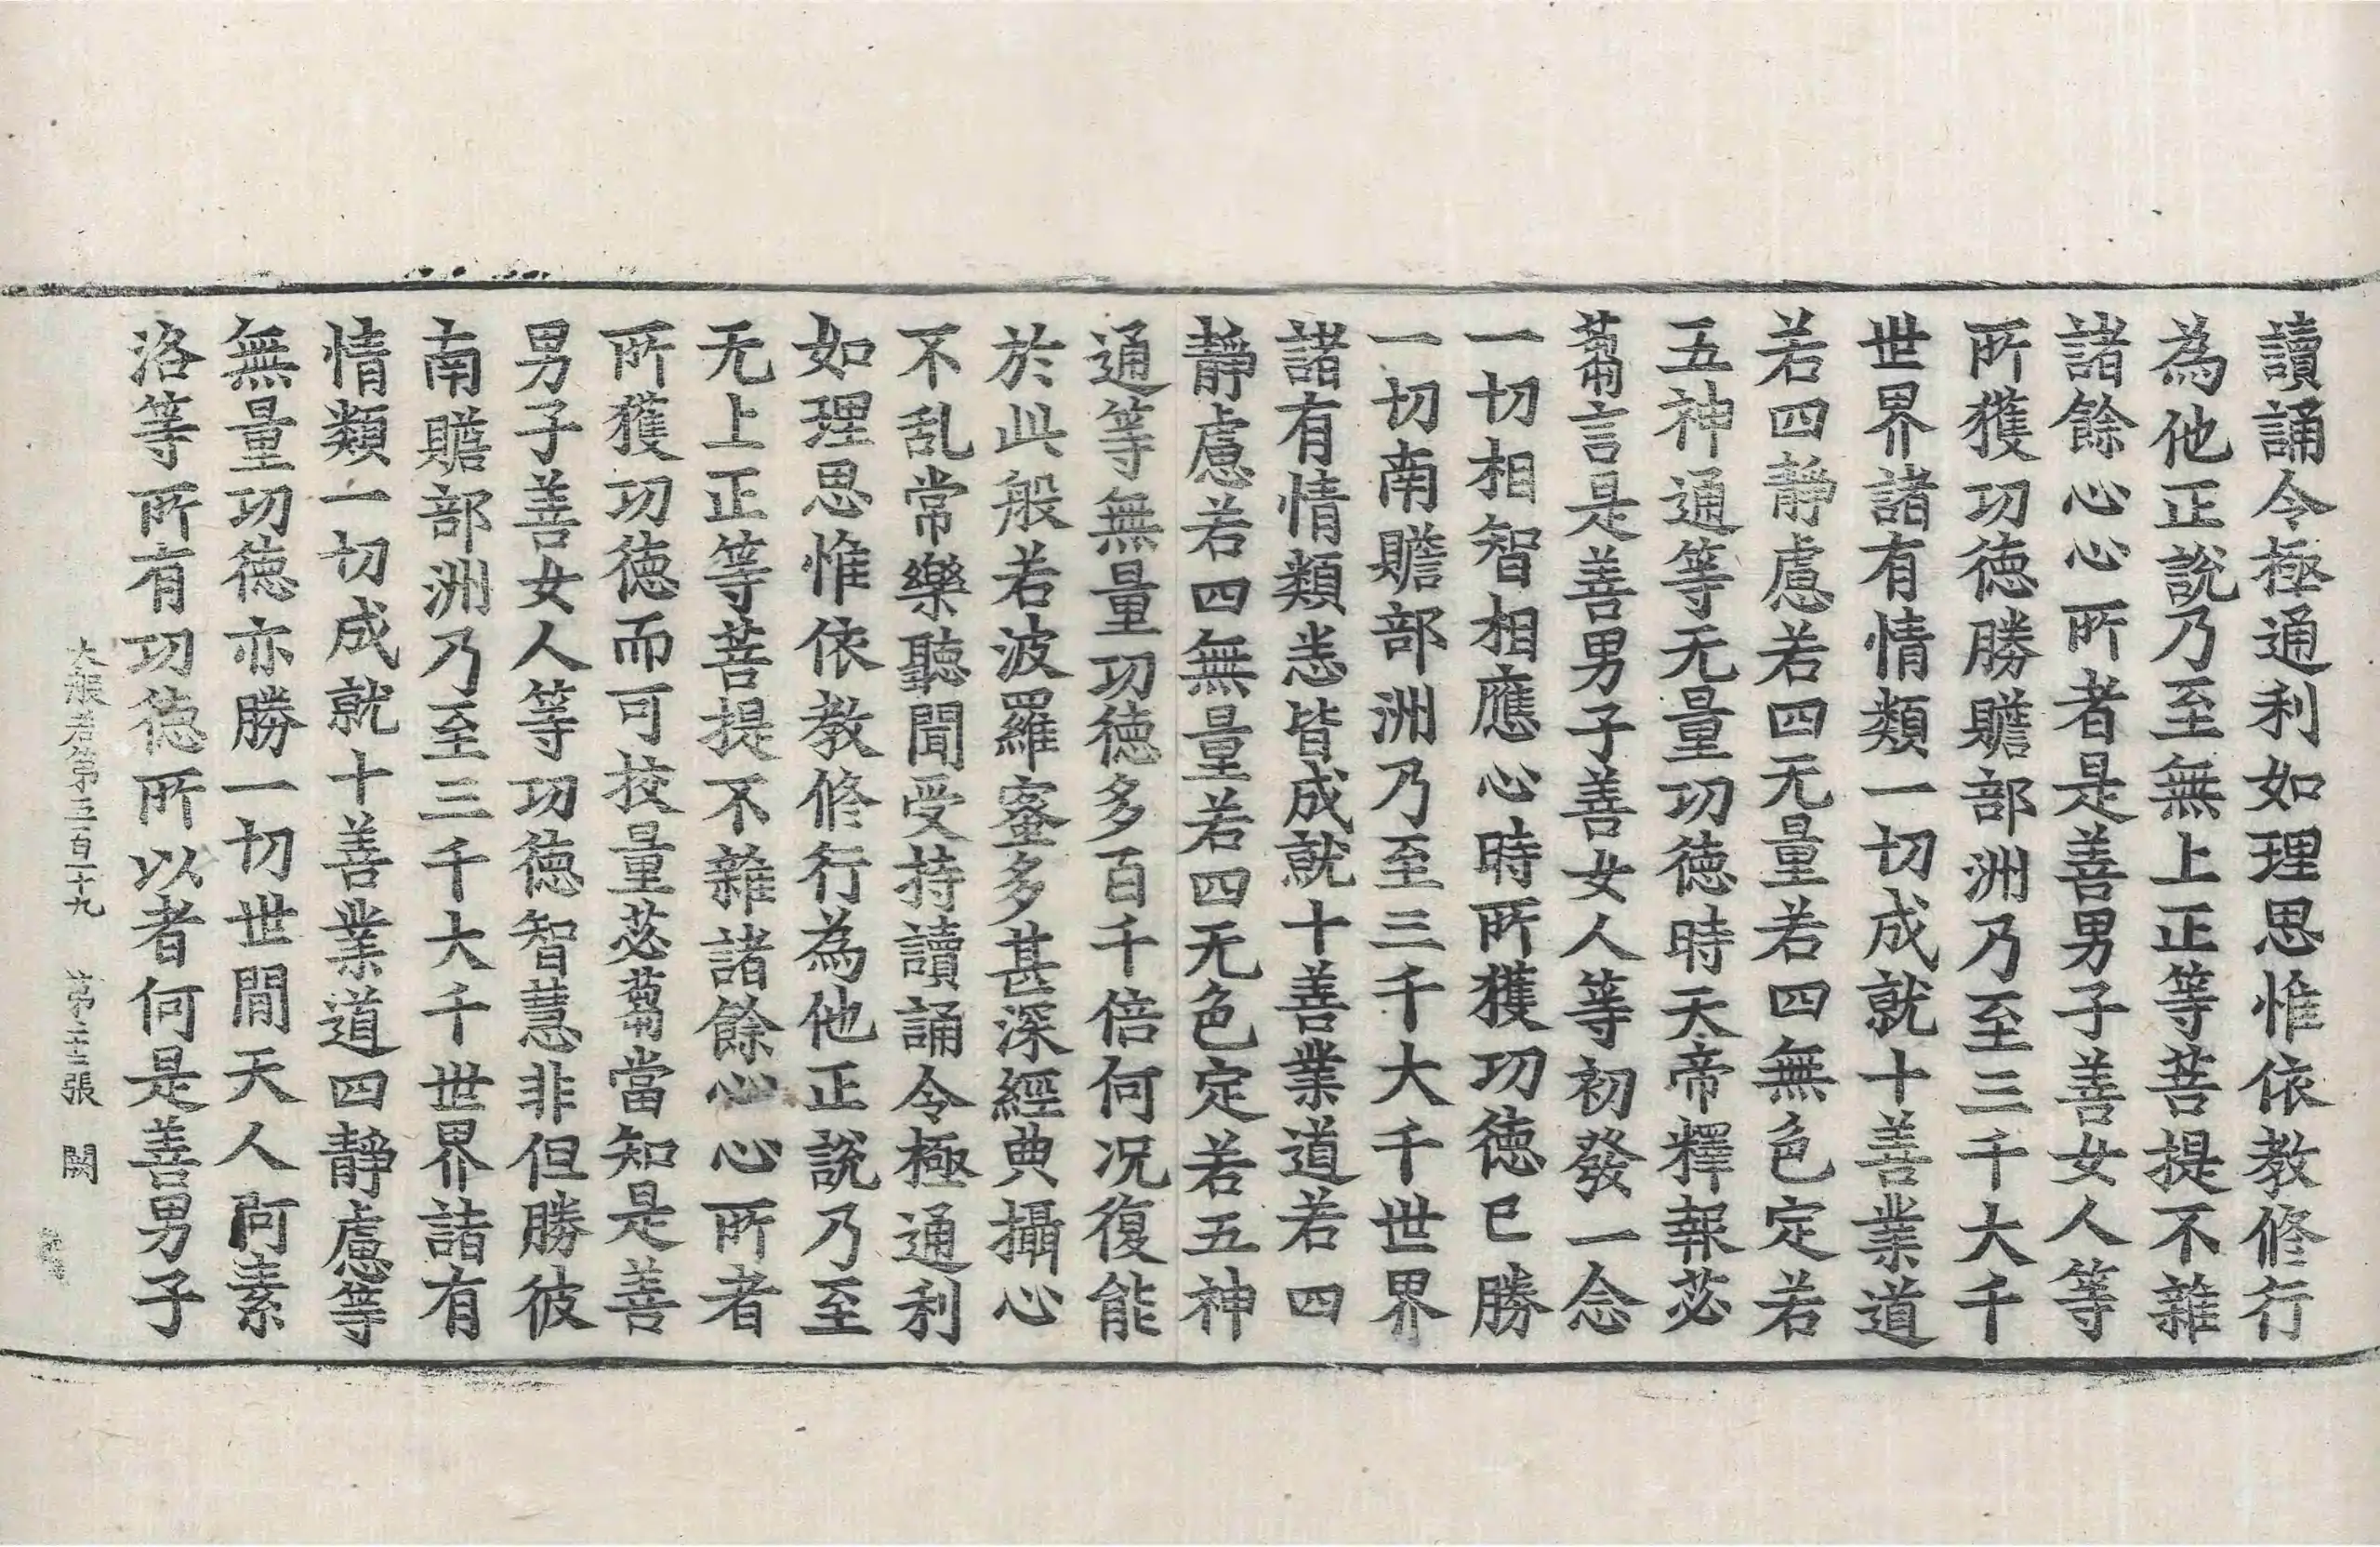 讀誦令極通利如理思惟依教修行
為他正說乃至無上正等菩提不雜
諸餘心心所者是善男子善女人等
所獲功徳勝贍部洲乃至三千大千
世界諸有情類一切成就十善業道
若四静慮若四无量若四無色定若
五神通等无量功徳時天帝釋報苾
蒭言是善男子善女人等初發一念
一切相智相應心時所獲功徳已勝
一切南贍部洲乃至三千大千世界
諸有情類悉皆成就十善業道若四
靜慮若四無量若四无色定若五神
通等無量功徳多百千倍何况復能
於此般若波羅蜜多甚深經典攝心
不乱常樂聽聞受持讀誦令極通利
如理思惟依教修行為他正說乃至
无上正等菩提不雜諸餘心心所者
所獲功徳而可挍量苾蒭當知是善
男子善女人等功徳智慧非但勝彼
南贍部洲乃至三千大千世界諸有
情類一切成就十善業道四靜慮等
無量功徳亦勝一切世間天人阿素
洛等所有功徳所以者何是善男子
大般若第五百二十九 第二十三張 闕